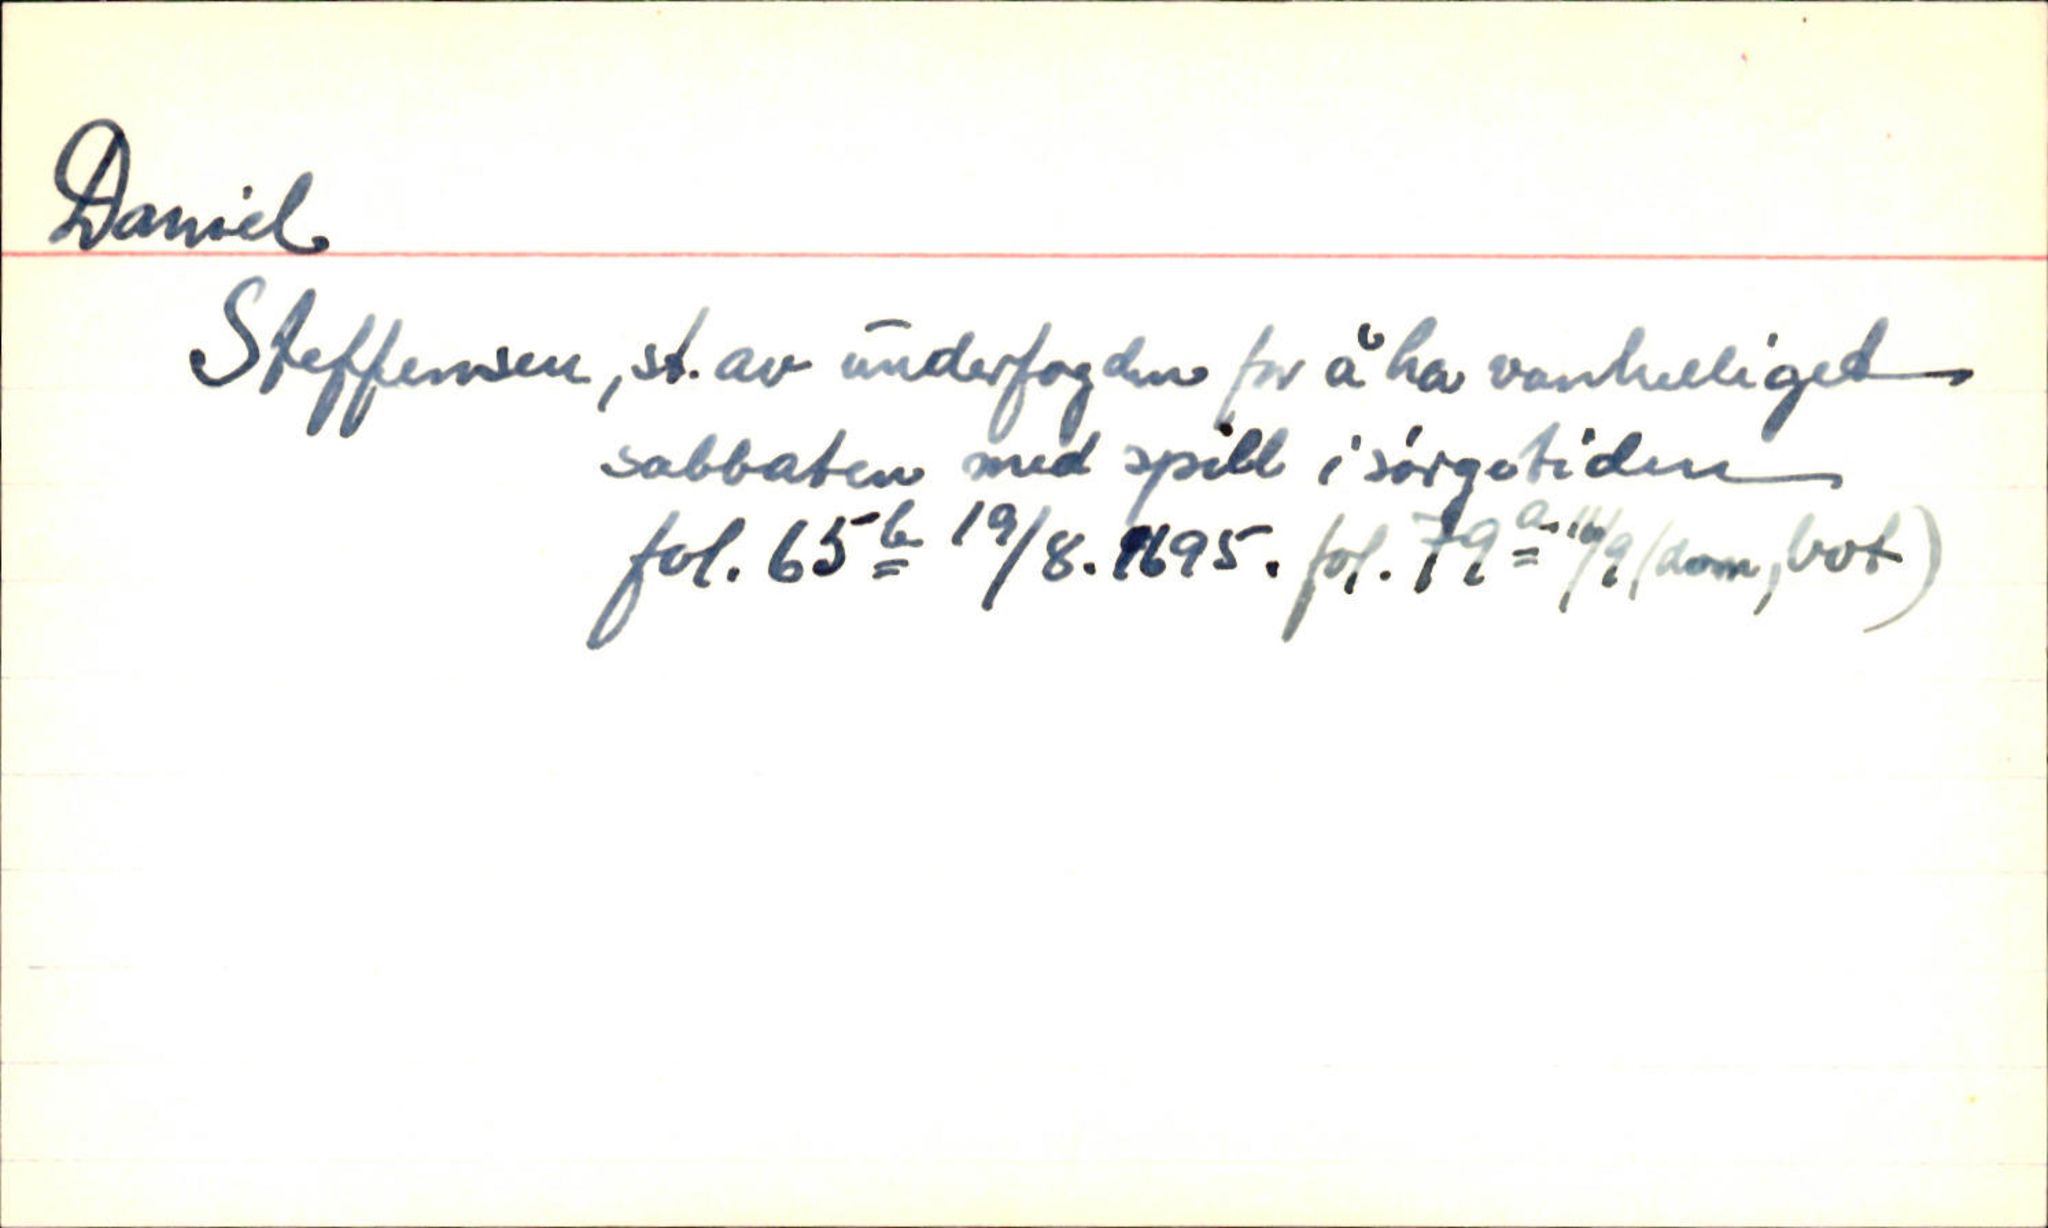 Daniel
Steffensen, st. av underfogden for å ha vanhelliget
sabbaten med spill i sørgetiden
fol. 65b 19/8. 1695. fol. 79a /9 (dom, bot)